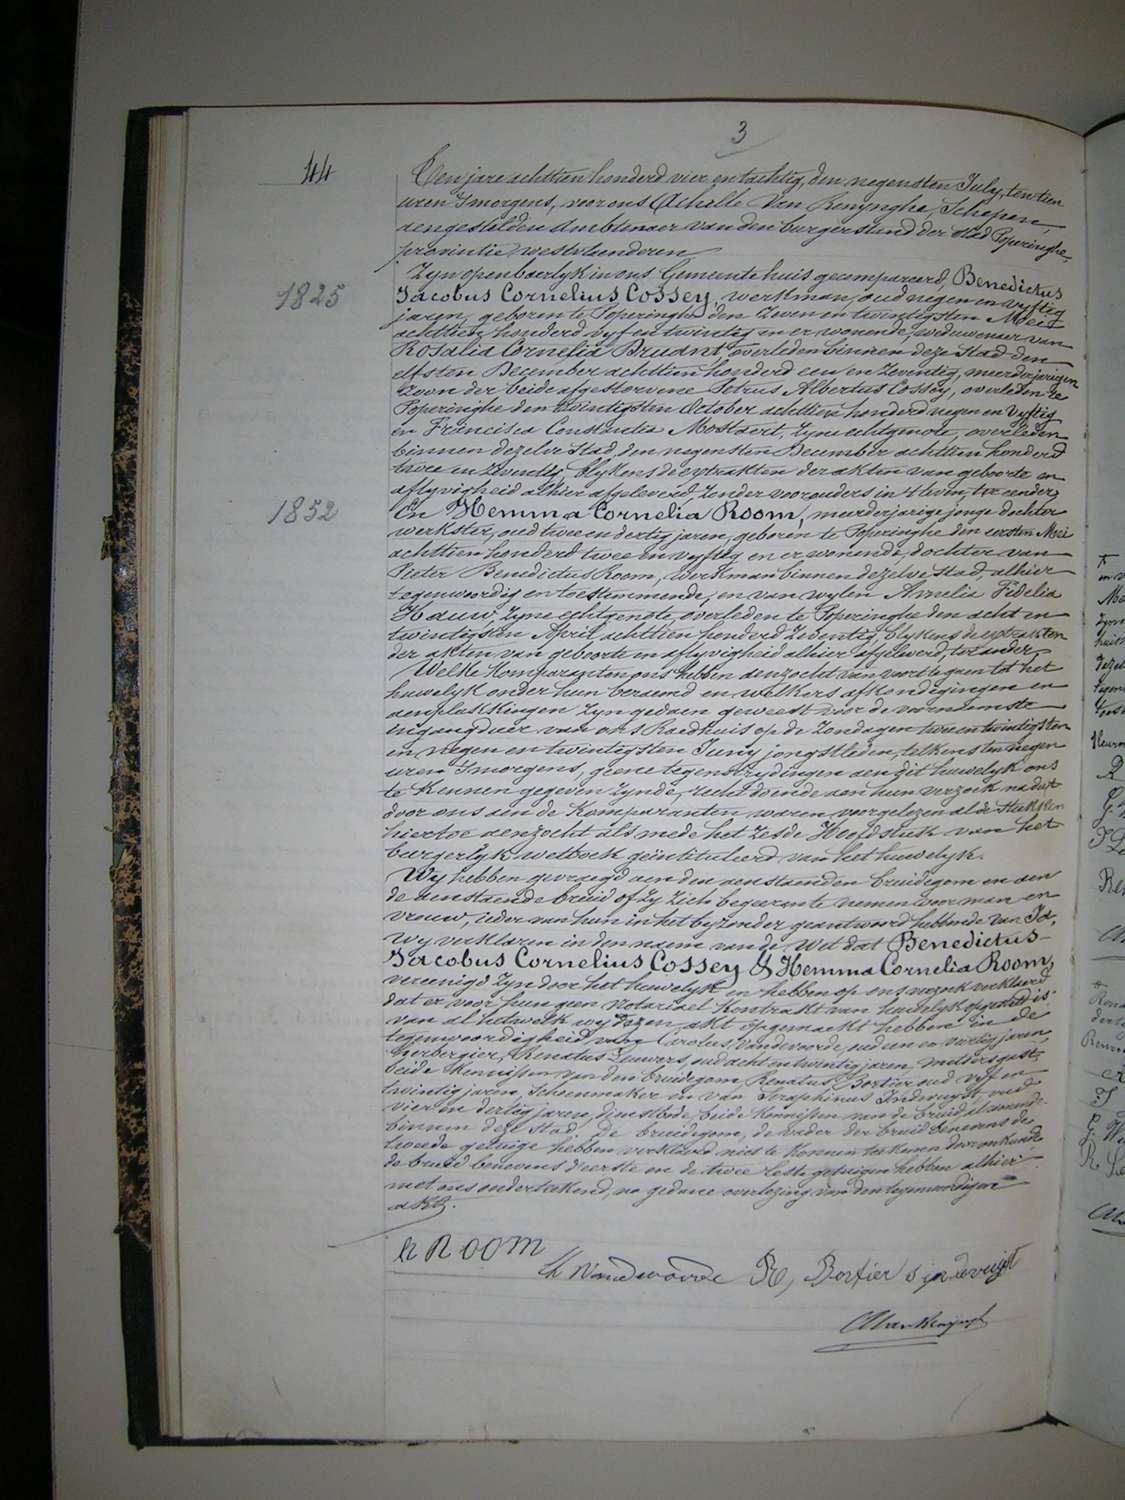 3
44
Ten jare achttien honderd vier en tachtig, den negensten July, ten tien
uren s'morgens, voor ons Achille Van Renynghe, Schepen,
aengestelden Ambtenaer van den burgerstand der stad Poperinghe,
provintie westvlaenderen
Zyn openbaerlyk in ons Gemeente huis gecompareerd, Benedictus
1825
Jacobus Cornelius Cossey, werkman, oud negen en vyftig
jaren, geboren te Poperinghe den zeven en twintigsten Mei
achttien honderd vyf en twintig en er wonende, weduwenaer van
Rosalia Cornelia Bruant overleden binnen deze stad den
elfsten December achttien honderd een en zeventig, meerderjarigen
zoon der beide afgestorvene Petrus Albertus Cossey, overleden te
Poperinghe den twintigsten October achttien honderd negen en vyftig
en Francisca Constantia Mostaert, zyne echtgenote, overleden
binnen dezelve stad, den negensten December achttien honderd
twee en zeventig, blykens de extrakten der akten van geboorte en
aflyvigheid alhier afgeleverd, zonder voorouders in 't leven, ter eender
1852
En Hemma Cornelia Room, meerderjarige jonge dochter
werkster, oud twee en dertig jaren, geboren te Poperinghe den eersten Mei
achttien honderd twee en vyftig en er wonende, dochter van
Pieter Benedictus Room, werkman binnen dezelve stad, alhier
tegenwoordig en toestemmende, en van wylen Amelia Fidelia
Hauw, zyne echtgenote, overleden te Poperinghe den acht en
twintigsten April achttien honderd zeventig, blykens de extrakten
der akten van geboorte en aflyvigheid alhier afgeleverd, ter ander
Welke Komparanten ons hebben aenzocht van voort te gaen tot het
huwelyk onder hun beraemd en welkers afkondigingen en
aenplakkingen zyn gedaen geweest voor de voornaemste
ingangdeur van ons Raedhuis op de zondagen twee en twintigsten
en negen en twintigsten Juny jongstleden, telkens ten negen
uren s'morgens, geene tegenstrydingen aen dit huwelyk ons
te kennen gegeven zynde, recht doende aen hun verzoek na dat
door ons aen de Komparanten waren voorgelezen al de stukken
hiertoe aenzocht als mede het zesde Hoofdstuk van het
burgerlyk wetboek geïntituleerd van het huwelyk.
Wy hebben gevraegd aen den aenstaenden bruidegom en aen
de aenstaende bruid of zy zich begeeren te nemen voor man en
vrouw, ieder van hun in het byzonder geantwoord hebbende van Ja,
Wy verklaren in den naem van de Wet dat Benedictus
Jacobus Cornelius Cossey & Hemma Cornelia Room,
vereenigd zyn door het huwelyk en hebben op ons verzoek verklaerd
dat er voor hun geen Notarieel Kontrakt van huwelyk gepasseerd is
van al hetwelk wy dezen akt opgemaekt hebben in de
tegenwoordigheid van Carolus Vandevoorde, oud een en veertig jaren
herbergier, Renatus Leuwers, oud acht en twintig jaren,
beide Kennissen van den bruidegom, Renatus Bortier oud vyf en
twintig jaren, Schoenmaker en van Seraphinus Indevuyst, oud
vier en dertig jaren, dienstbode, beide Kennissen van de bruid, al wonende
binnen deze stad. De bruidegom, de vader der bruid benevens de
tweede getuige hebben verklaerd niet te konnen teekenen door onkunde
de bruid benevens d'eerste en de twee leste getuigen hebben alhier
met ons onderteekend, na gedaene overlezing van den tegenwoordigen
akte.
h ROOM
Ch Vandevoorde R, Bortier s indevuijst
AVanRenynghe